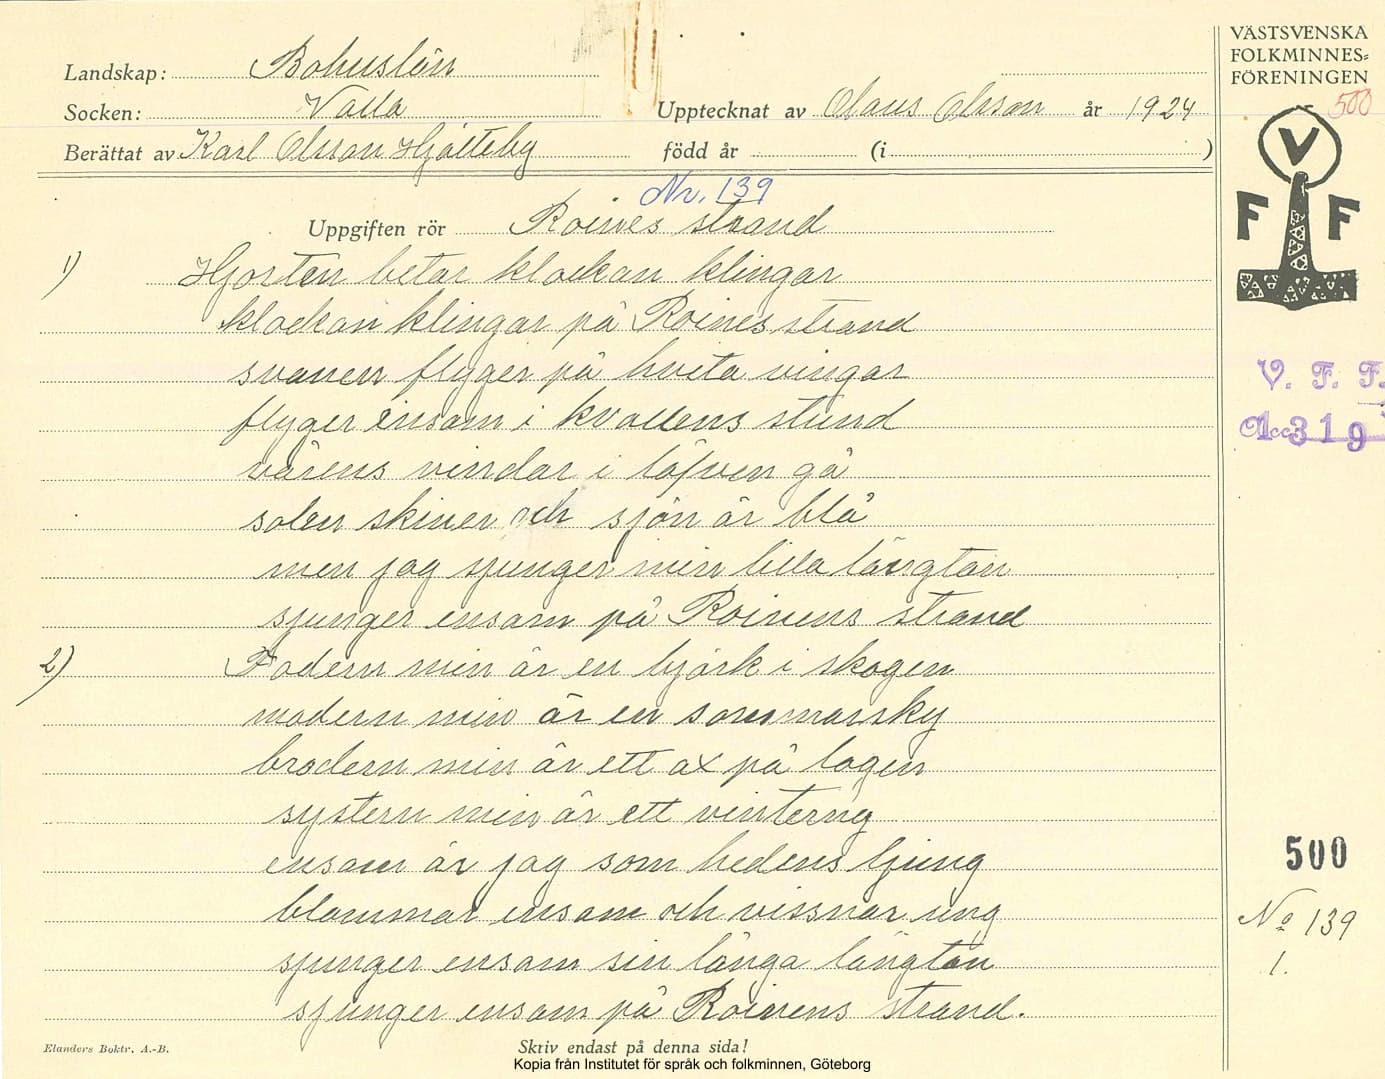 Landskap: Bohuslän
Socken: Valla
Upptecknat av Olaus Olsson år 1924
Berättat av Karl Olsson Hjälteby född år (i )
Nr. 139
Uppgiften rör Roines strand
1) Hjorten betar klockan klingar
klockan klingar på Roines strand
svanen flyger på hvita vingar
flyger ensam i kvällens stund
vårens vindar i löfven gå
solen skiner och sjön är blå
men jag sjunger min lilla längtan
sjunger ensam på Roinens strand
2) Fadern min är en björk i skogen
modern min är en sommarsky
brodern min är ett ax på logen
systern min är ett vinterny
ensam är jag som hedens ljung
blommar ensam och vissnar ung
sjunger ensam sin långa längtan
sjunger ensam på Roinens strand.
Elanders Boktr. A.-B.
Skriv endast på denna sida!
Kopia från Institutet för språk och folkminnen, Göteborg
VÄSTSVENSKA
FOLKMINNES-
FÖRENINGEN
500
V
F F
V. F. F.
Acc 1319
500
No 139
1.